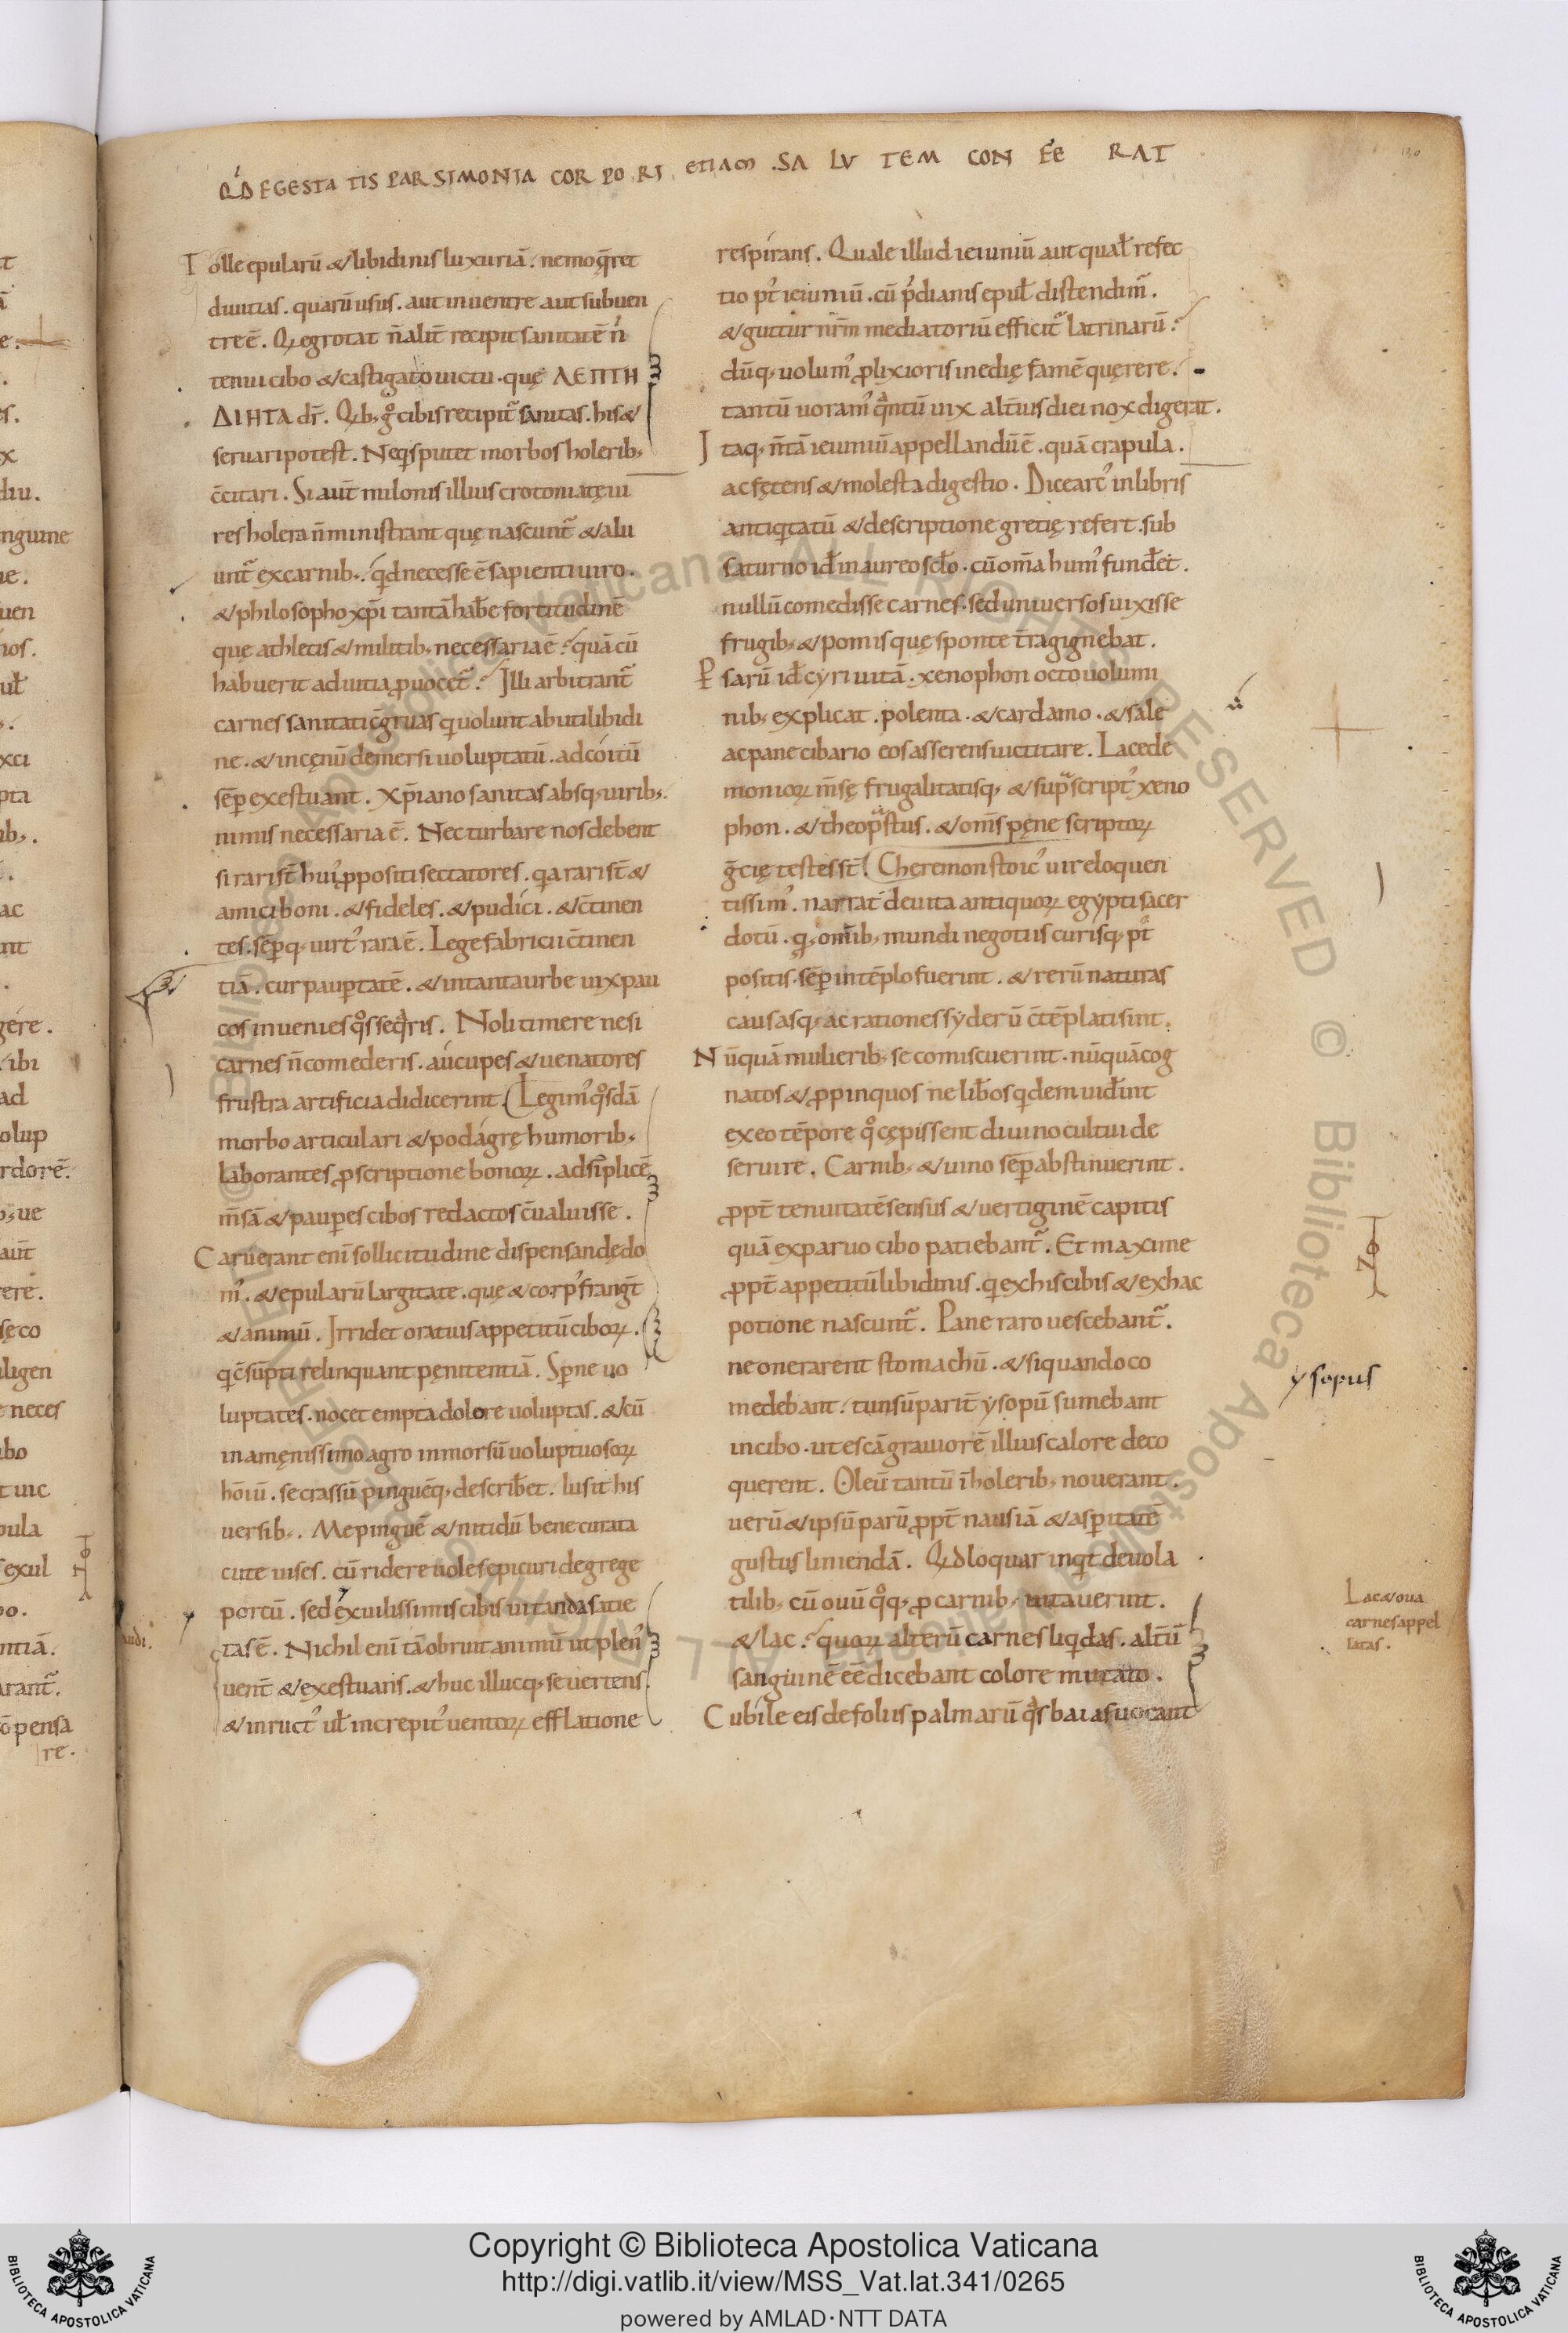 Q'D EGESTATIS PARSIMONIA CORPORI ETIAM SALUTEM CONFERAT
Tolle epularū & libidinis luxuriā. nemo q̄ret
diuitias. quarū usus. aut in uentre aut sub uen
tre ē. Qi egrotat n̄ alit̄ recipit sanitatē n'
tenui cibo & castigato uictu. quę ΛΕΠΤΗ
ΔΙΗΤΑ dr̄. Qib; g° cibis recipit̃ sanitas. his &
seruari potest. Neq̣s putet morbos holerib;
c̄citari. Si aut̄ milonis illius crotoniatę ui
res holera n̄ ministrant quę nascunt̃ & alu
unt̃ ex carnib;. q'd necesse ē sapienti uiro.
& philosopho xp̄i tantā hab̄e fortitudinē
quę athletis & militib; necessaria ē? quā cū
habuerit ad uitia ꝓuocet̃? Illi arbitrant̃
carnes sanitati c̄gruas qui uolunt abuti libidi
ne. & in cęnū demersi uoluptatū. ad coitū
sēp exestuant. Xp̄iano sanitas absq; uirib;.
nimis necessaria ē. Nec turbare nos debent
si rari st̄ hui' ꝓpositi sectatores. qa rari st̄ &
amici boni. & fideles. & pudici. & c̄tinen
tes. sēpq; uirt' rara ē. Lege fabricii c̄tinen
tiā. curii paup̱tatē. & in tanta urbe uix pau
cos inuenies q°s seq̄ris. Noli timere ne si
carnes n̄ comederis. aucupes & uenatores
frustra artificia didicerint. Legim' q°sdā
morbo articulari & podagrę humorib;
laborantes ꝓscriptione bonoꝝ. ad simplicē
m̄sā & paup̱es cibos redactos c̄ualuisse.
Caruerant eni sollicitudine dispensandę do
m'. & epularū largitate. quę & corp' frangt̄
& animū. Irridet oratius appetitū ciboꝝ.
qi c̄sūpti relinquant pęnitentiā. Sp̱ne uo
luptates. nocet empta dolore uoluptas. & cū
in amęnissimo agro in morsū uoluptuosoꝝ
hōiū. se crassū pinguēq; describ̄et. lusit his
uersib;. Me pinguē & nitidū bene curata
cute uises. cū ridere uoles epicuri de grege
porcū. sed ex uilissimis cibis uitanda satie
tas ē. Nichil eni tā obruit animū ut plen'
uent̄ & exestuans. & huc illucq; se uertens
& in ruct' ul̄ in crepit' uentoꝝ efflatione
respirans. Quale illud ieiuniū aut qual̄ refec
tio p't ieiuniū. cū p'dianis epul̄ distendim̃.
& guttur nr̄m meditatoriū efficit̃ latrinarū?
dūq; uolum' ꝓlixioris inedię famē quęrere.
tantū uoram' q̃ntū uix alt̄ius diei nox digerat.
Itaq; n̄ tā ieiuniū appellandū ē. quā crapula.
ac fętens & molesta digestio. Dicearc' in libris
antiqtatū & descriptione gretię refert. sub
saturno id̄ in aureo scl̄o. cū om̄a hum' fund̄et.
nullū comedisse carnes. sed uniuersos uixisse
frugib; & pomis quę sponte t̄ra gignebat.
Psarū id̄ cyri uitā. xenophon octo uolumi
nib; explicat. polenta. & cardamo. & sale
ac pane cibario eos asserens uictitare. Lacede
monioꝝ m̄sę frugalitatisq; & sup̃script' xeno
phon. & theop̃stus. & om̄s pęne scriptoꝝ
g̃cię testes st̄. Cheremon stoic' uir eloquen
tissim'. narrat de uita antiquoꝝ egypti sacer
dotū. q; omib; mundi negotiis curisq; pt̄
positis. sēp in tēplo fuerint. & rerū naturas
causasq; ac rationes syderū c̄tēplati sint.
Nūquā mulierib; se comiscuerint. nūquā cog
natos & ꝓpinquos ne lib̄os qdem uid̄int
ex eo tēpore q° cępissent diuino cultui de
seruire. Carnib; & uino sēp abstinuerint.
ꝓpt̄ tenuitatē sensus & uertiginē capitis
quā ex paruo cibo patiebant̃. Et maxime
ꝓpt̄ appetitū libidinis. qi ex his cibis & ex hac
potione nascunt̃. Pane raro uescebant̃.
ne onerarent stomachū. & si quando co
medebant. tunsū parit̄ ysopū sumebant
in cibo. ut escā grauiorē illius calore deco
querent. Oleū tantū ī holerib; nouerant.
uerū & ipsū parū ꝓpt̄ nausiā & asp̱itatē
gustus liniendā. Qid loquar inqt de uola
tilib; cū ouū q°q; ꝓ carnib; uitauerint.
& lac? quoꝝ alterū carnes liqdas. alt̄ū
sanguinē eē dicebant colore mutato.
Cubile eis de foliis palmarū q̃s baias uocant
ysopus
Lac & oua
carnes appel
latas.
Copyright © Biblioteca Apostolica Vaticana
http://digi.vatlib.it/view/MSS_Vat.lat.341/0265
powered by AMLAD·NTT DATA